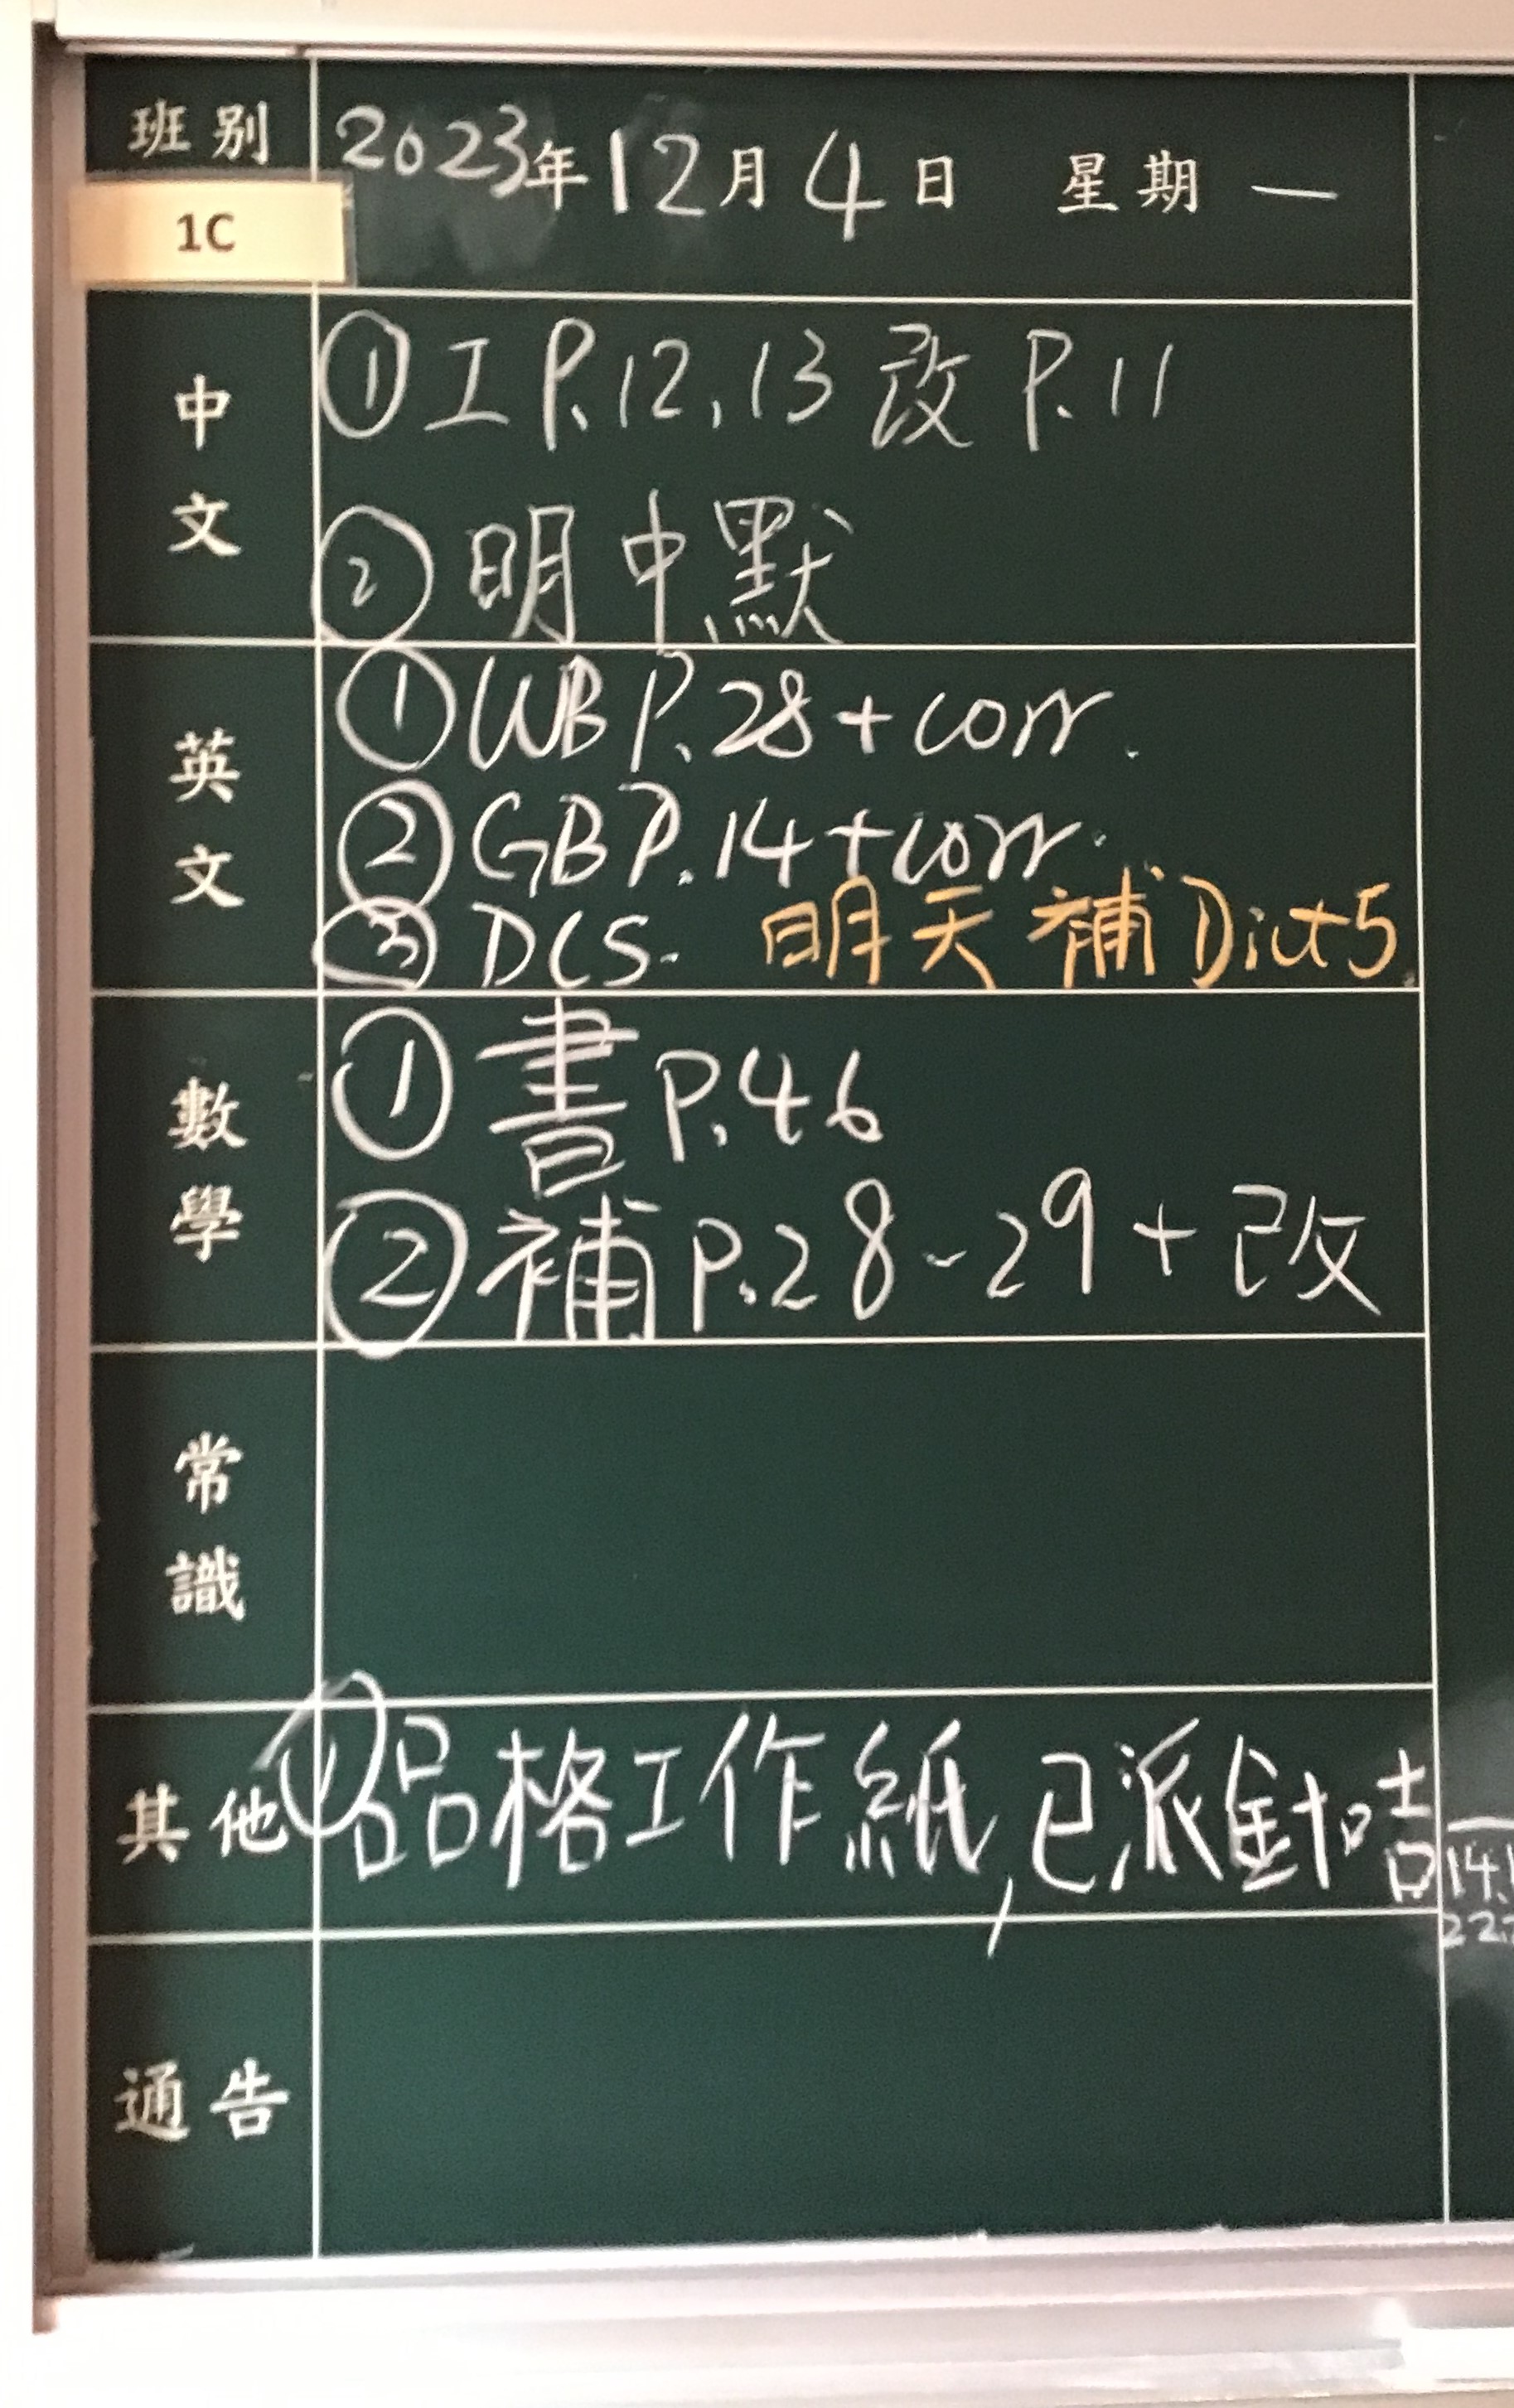 班別
1C
2023年12月4日 星期一
中文
①工P.12,13改P.11
②明中默
英文
①WB P.28+corr.
②GB P.14+corr.
③DCS. 明天補Dict5
數學
①書P.46
②補P.28-29+改
常識
其他
①品格工作紙,已派針咭
通告